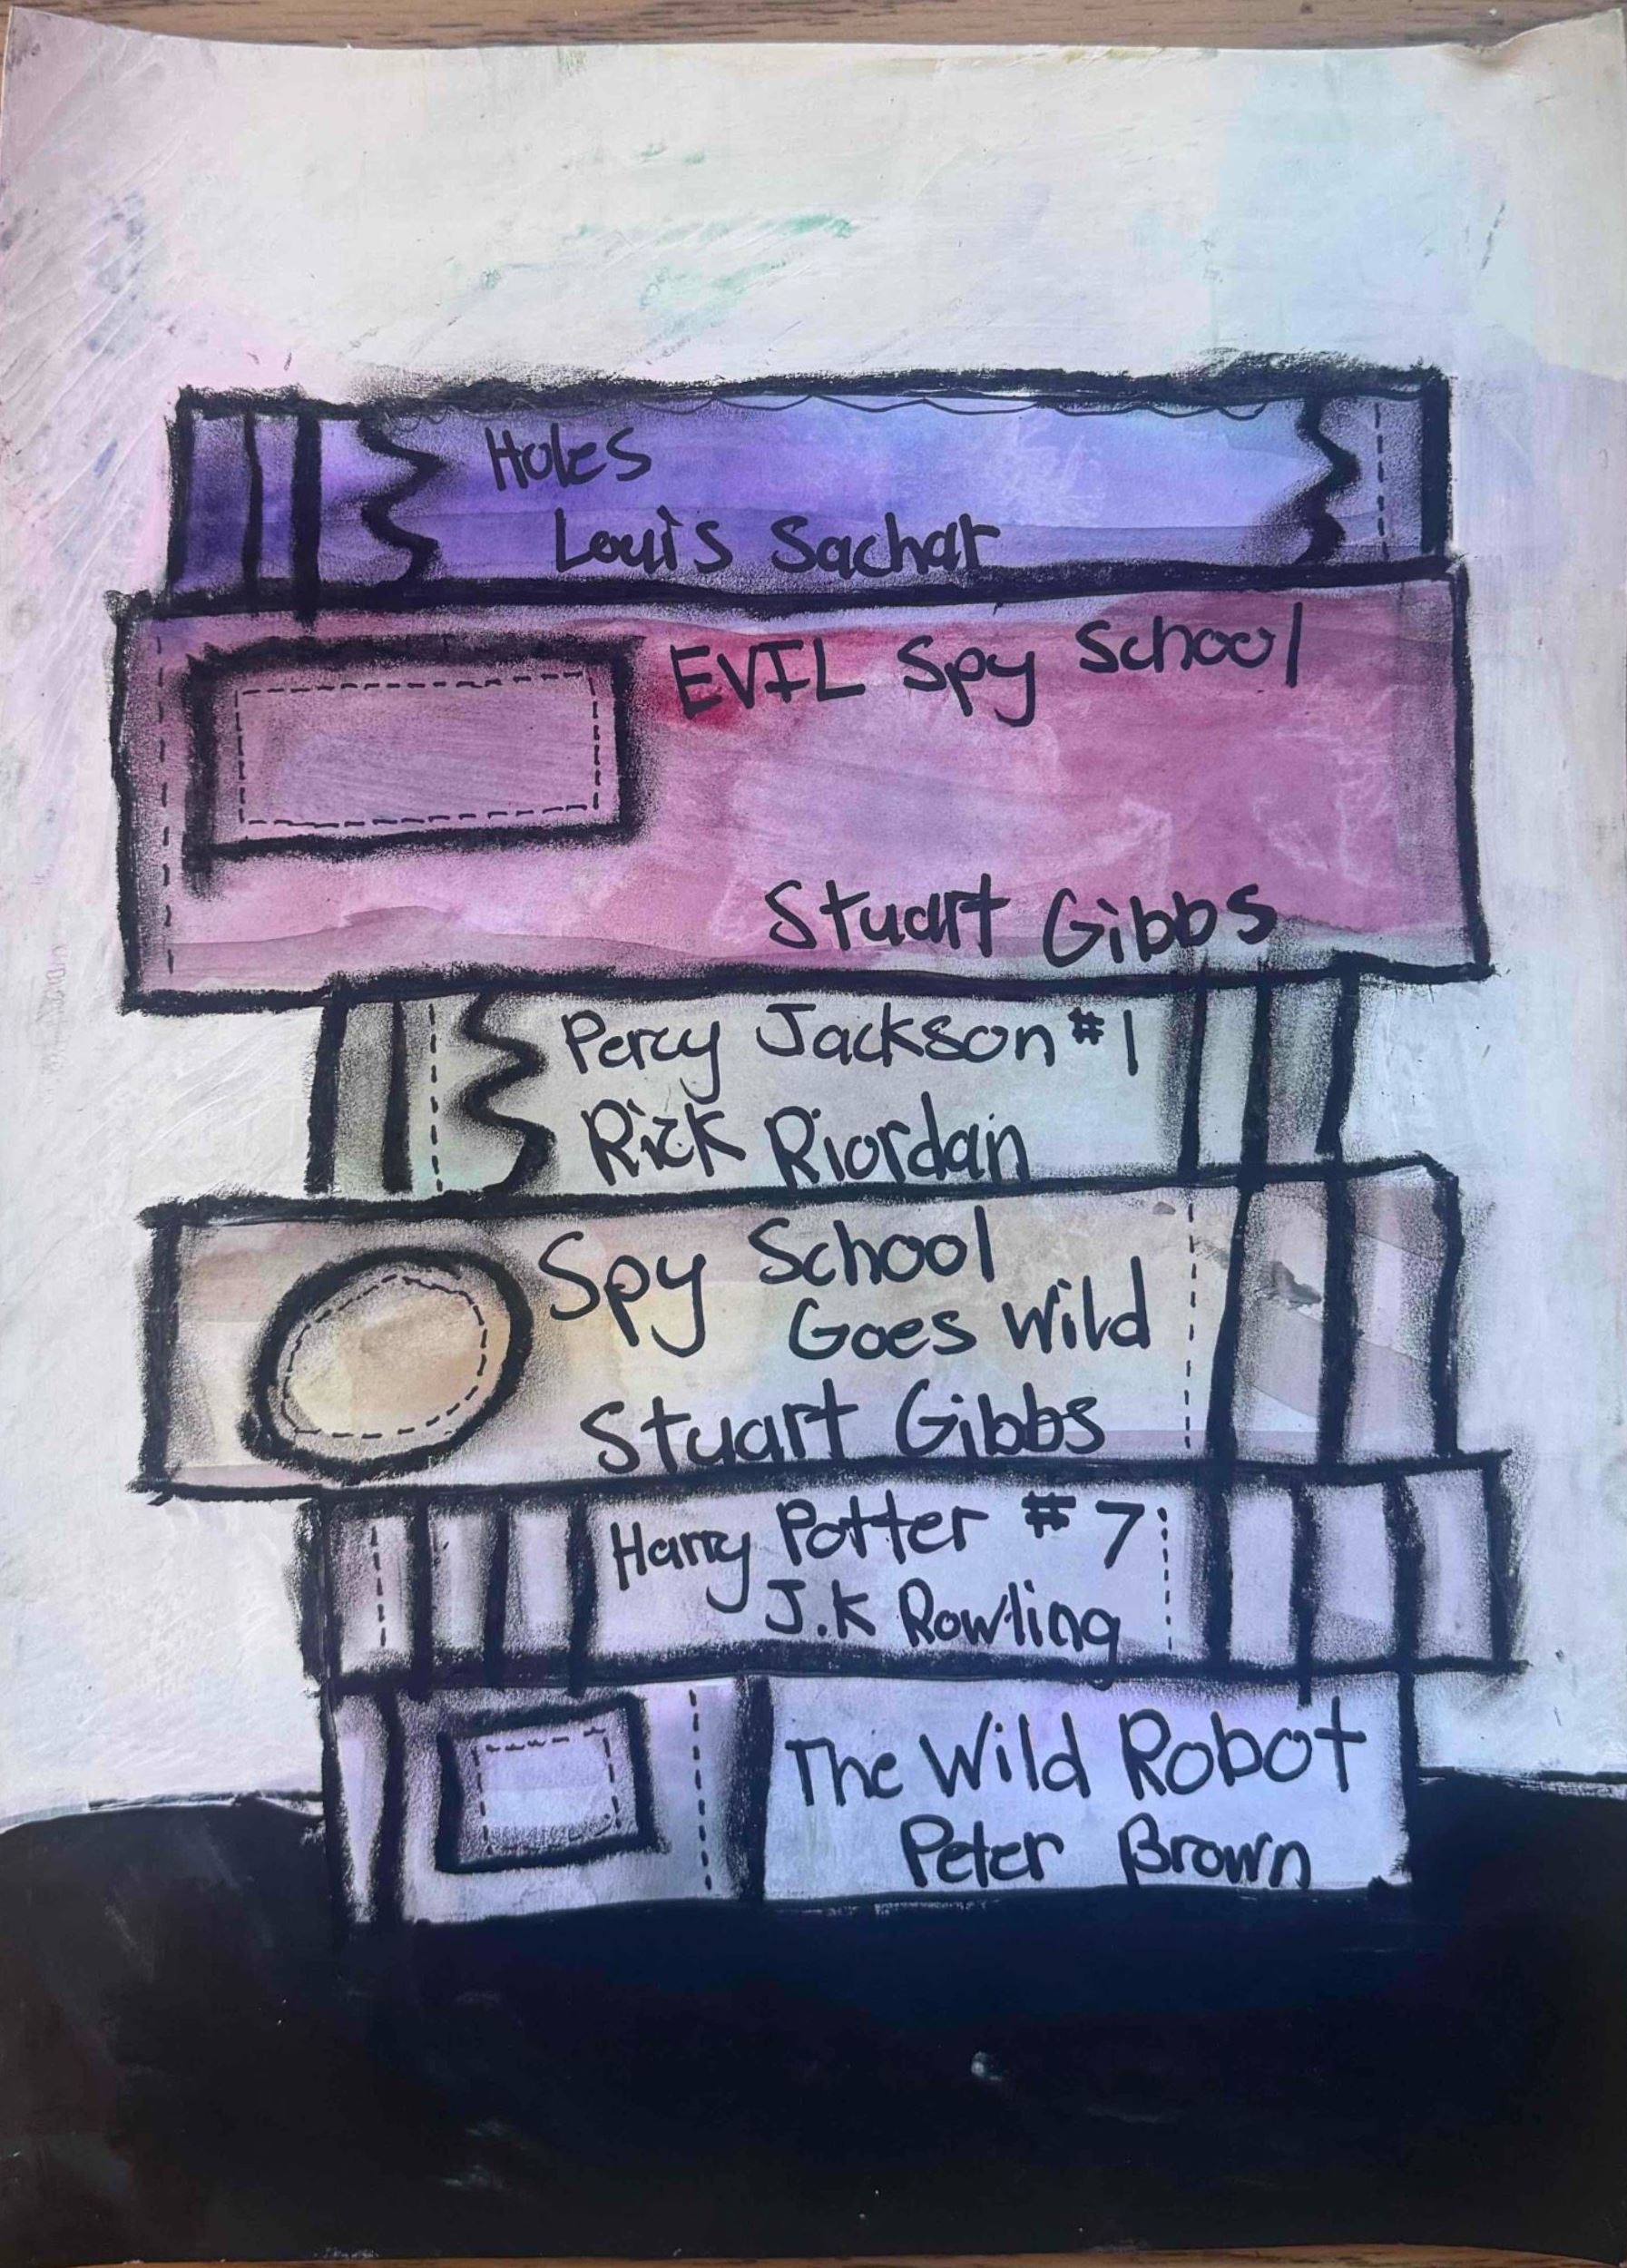 Holes
Louis Sachar
EVIL Spy School
Stuart Gibbs
Percy Jackson #1
Rick Riordan
Spy School
Goes Wild
Stuart Gibbs
Harry Potter #7
J.K Rowling
The Wild Robot
Peter Brown